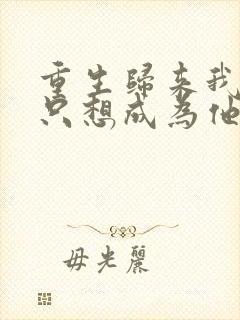 重生歸来我
只想成為他
毋光麗